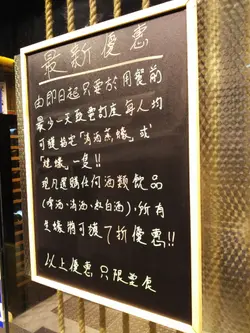 最新優惠
由即日起只要於用餐前
最少一天致電訂座每人均
可獲指定「清酒煮蠔」或
「燒蠔」一隻!!
現凡選購任何酒類飲品
(啤酒、清酒、紅白酒),所有
生蠔將可獲7折優惠!!
以上優惠只限堂食